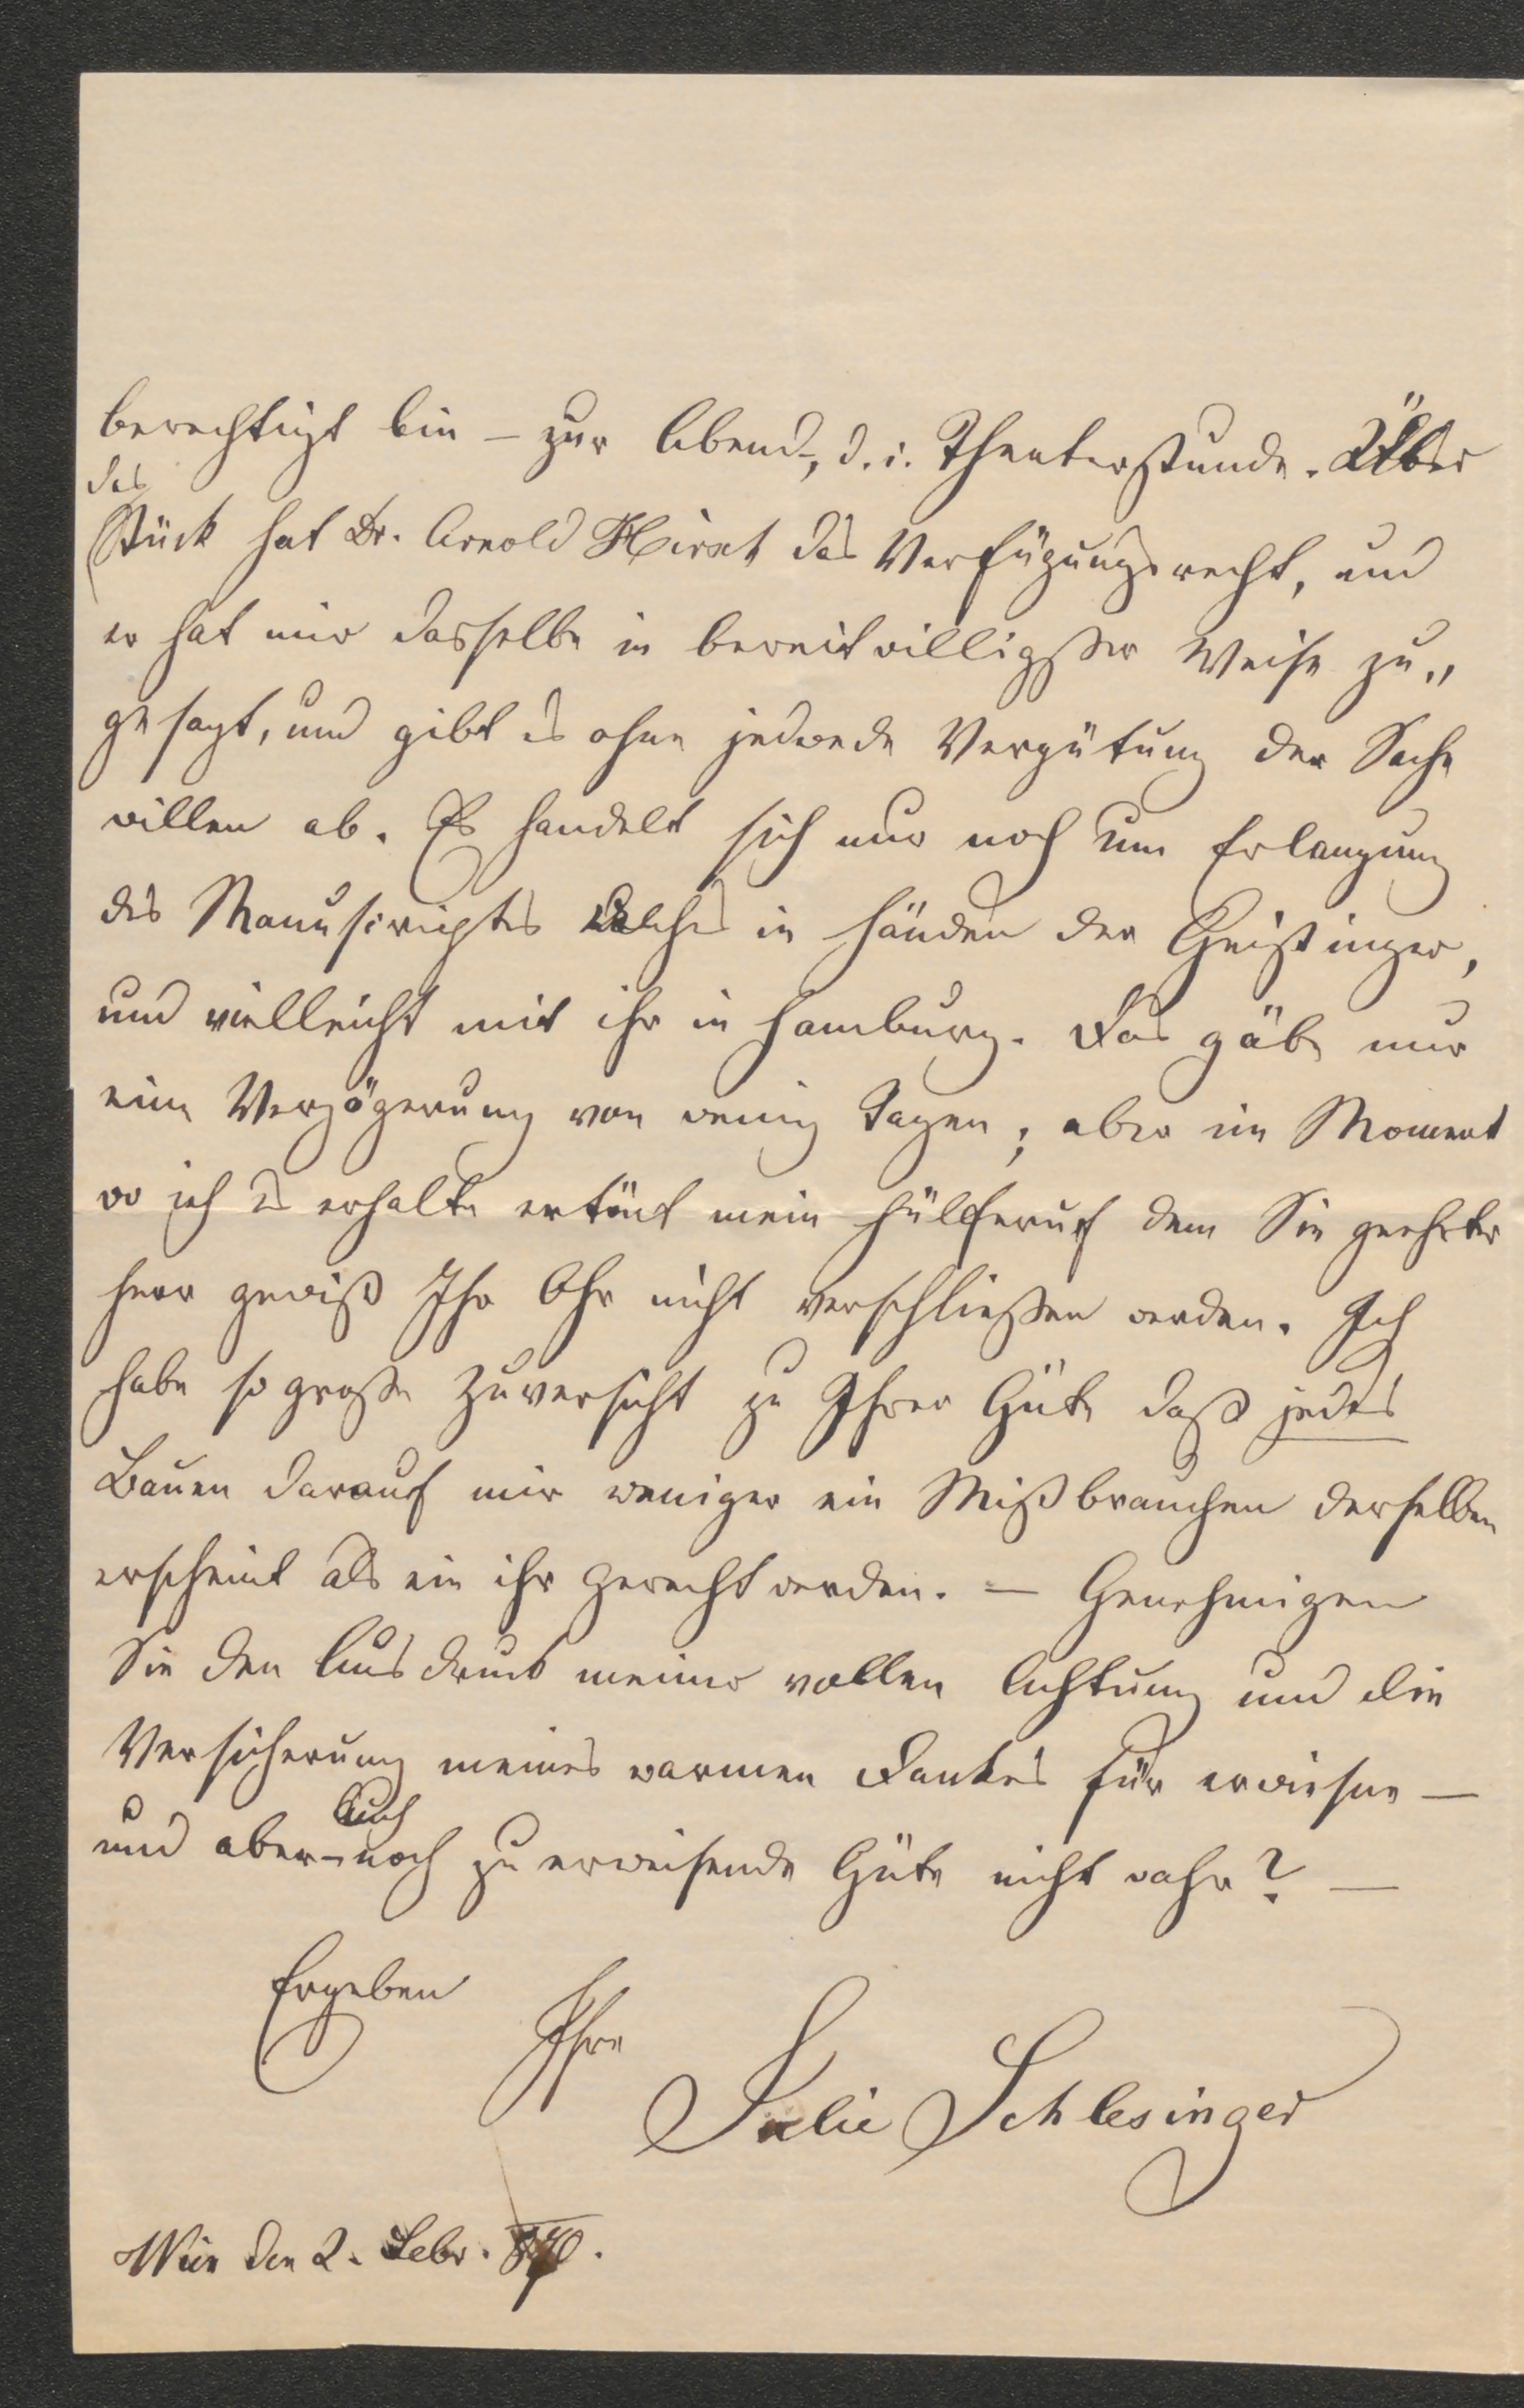 berechtigt bin – zur Abend-, d. i. Theaterstunde. Über
das
Stück hat Dr. Arnold Hirsch das Verfügungsrecht, und
er hat mir dasselbe in bereitwilligster Weise zu„
gesagt, und gibt es ohne jedwede Vergütung der Sache
willen ab. Es handelt sich nur noch um Erlangung
des Manuscriptes welches in Händen der Geistinger,
und vielleicht mit ihr in Hamburg. Das gäbe nur
eine Verzögerung von wenig Tagen; aber im Moment
wo ich es erhalte ertönt mein Hülferuf dem Sie geehrter
Herr gewiß Ihr Ohr nicht verschließen werden. Ich
habe so große Zuversicht zu Ihrer Güte daß jedes
Bauen darauf mir weniger ein Mißbrauchen derselben
erscheint als ein ihr gerecht werden. – Genehmigen
Sie den Ausdruck meiner vollen Achtung und die
Versicherung meines warmen Dankes für erwiesne –
auch
und aber – noch zu erweisende Güte nicht wahr? –
Ergeben
Ihre
Julie Schlesinger
Wien den 2. Febr.